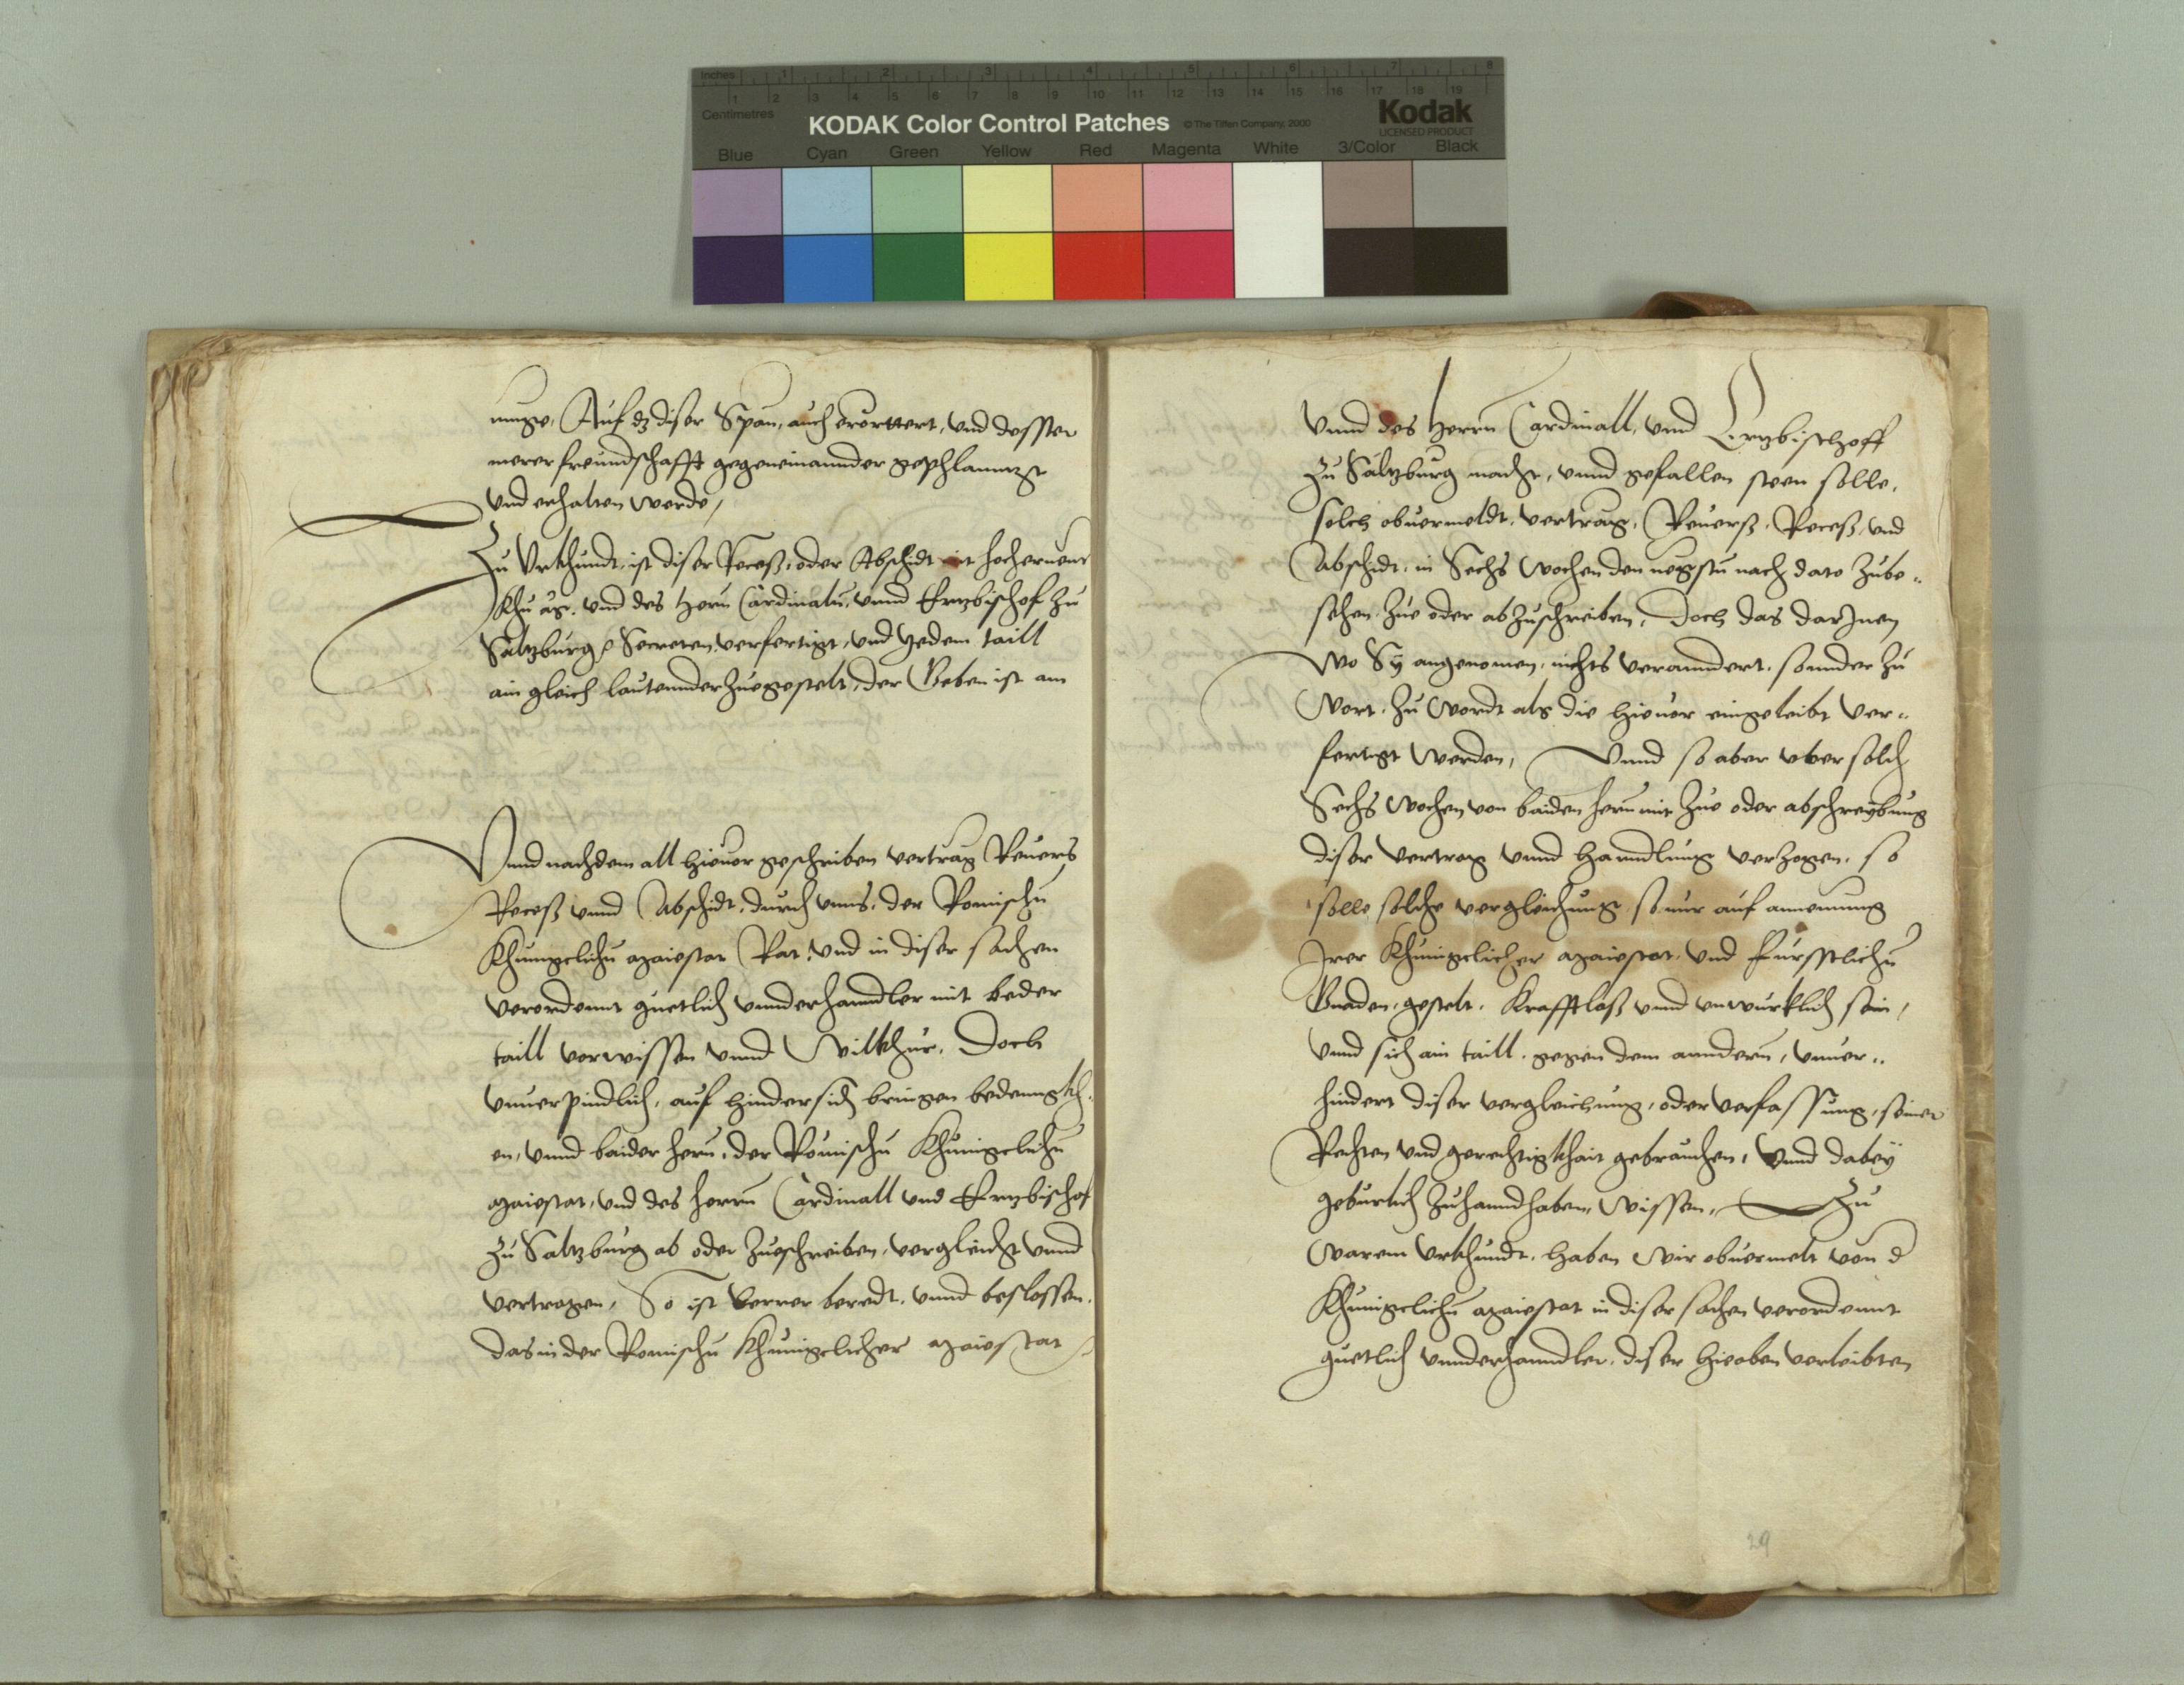 inches 1 2 3 4 5 6 7 8
1 2 3 4 5 6 7 8 9 10 11 12 13 14 15 16 17 18 19
Centimetres
KODAK Color Control Patches © The Tiffen Company, 2000
Kodak
LICENSED PRODUCT
Blue Cyan Green Yellow Red Magenta White 3/Color Black
muge, Auf dz diser Span, auch erörttert, vnd desster
merer freundschafft gegeneinannder gephlanntzt
vnd erhalten werde,
Zu Vrkhundt, ist diser Recess, oder Abschidt mit hochernent
Khu. Mt. vnd des Herrn Cardinaln, vnnd Ertzbischof zu
Saltzburg Secreten, verfertigt, vnd yedem taill
ain gleich lautennder zuegestelt, Der Geben ist am
Vnnd nachdem all hieuor geschriben vertrag Reuers
Recess vnnd Abschidt, durch vnns, der Romischn
Khunigclichn Maiestat Rat, vnd in diser sachen
verordennt guetlich vnnderhanndler mit beder
taill vorwissen vnnd Willkhur, Doch
vnuerpindlich, auf hindersich bringen bedenngkh-
en, vnnd baider herrn, der Römischn Khunigclichn
Maiestat, vnd des herrn Cardinall vnd Ertzbischof
zu Saltzburg ab oder zueschreiben, vergleicht vnnd
vertragen, So ist verrer beredt, vnnd beslossen,
das in der Romischn Khunigclicher Maiestat
Vnnd des Herrn Cardinall, vnnd Ertzbischoff
zu Saltzburg macht, vnnd gefallen steen solle,
solch obuermeldt, vertrag, Reuerß, Receß, vnd
Abschidt, in Sechs Wochen den negstn nach dato zube-
sehen, zue oder abzuschreiben, Doch das darInen
wo Sy angenomen, nichts veranndert, sonnder zu
Wort, zu Wordt als die hieuor eingeleibt ver-
fertigt werden, Vnnd so aber vber solch
Sechs Wochen von baiden herrn mit zue oder abschreybung
diser vertrag vnnd hanndlung verzogen, so
solle solche vergleichung, so nur auf annemung
Irer Khunigclicher Maiestat, vnd Furstlichn
Gnaden, gestelt, Krafftloß vnnd vnwurklich sein,
vnnd sich ain taill, gegen dem anndern, vnuer-
hindert diser vergleichung, oder verfassung, seiner
Rechten vnd gerechtigkhait gebrauchen, vnnd dabey
geburlich zuhanndhaben, wissen, Zu
Warem Vrkhundt, haben Wir obuermelt von d
Khunigclichn Maiestat in diser sachen verordennt
guetlich vnnderhanndler, diser hieoben verleibten
29